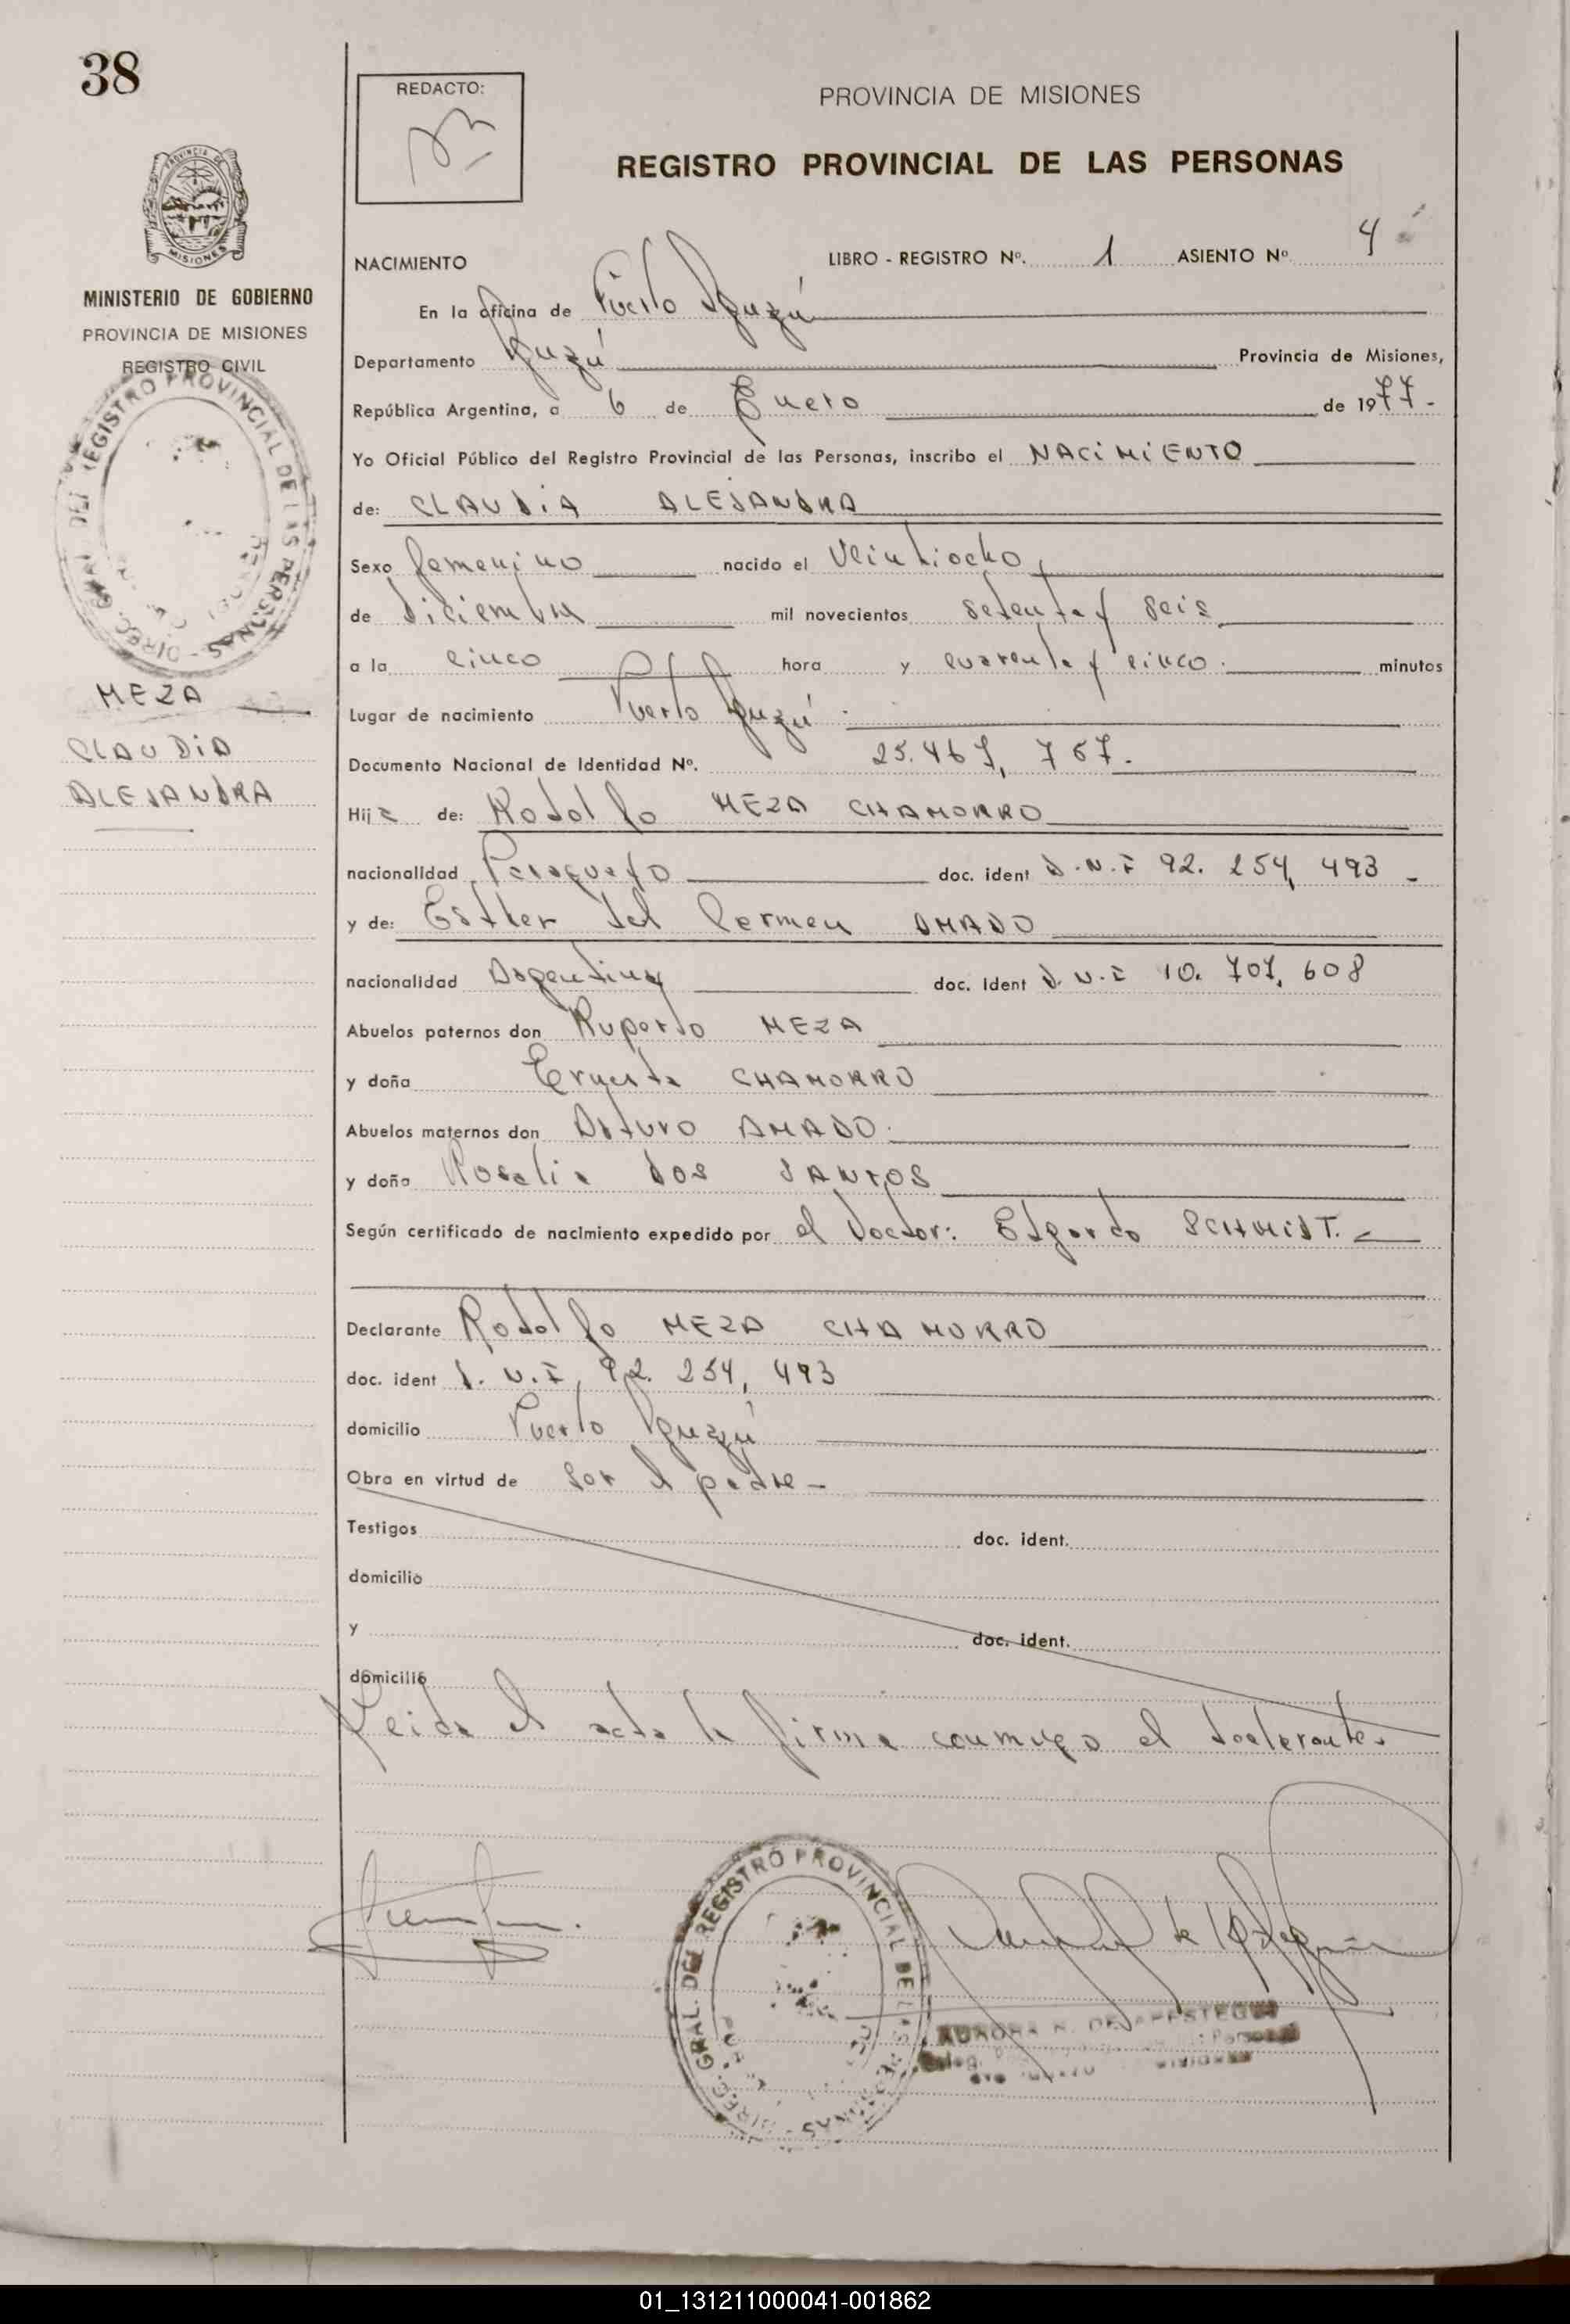 38
REDACTO:
PROVINCIA DE MISIONES
REGISTRO PROVINCIAL DE LAS PERSONAS
PROVINCIA DE
MISIONES
MINISTERIO DE GOBIERNO
PROVINCIA DE MISIONES
REGISTRO CIVIL
DIREC. GRAL. DEL REGISTRO PROVINCIAL DE LAS PERSONAS
MEZA
CLAUDIA
ALEJANDRA
NACIMIENTO LIBRO - REGISTRO Nº. 1 ASIENTO Nº 4
En la oficina de Puerto Iguazú
Departamento Iguazú Provincia de Misiones,
República Argentina, a 6 de Enero de 1977.-
Yo Oficial Público del Registro Provincial de las Personas, inscribo el NACIMIENTO
de: CLAUDIA ALEJANDRA
Sexo femenino nacido el veintiocho
de diciembre mil novecientos setenta y seis
a la cinco hora y cuarenta y cinco. minutos
Lugar de nacimiento Puerto Iguazú.
Documento Nacional de Identidad Nº. 25.467,767.-
Hija de: Rodolfo MEZA CHAMORRO
nacionalidad Paraguayo doc. ident D.N.I 92.254,493-
y de: Esther del Carmen AMADO
nacionalidad Argentina doc. ident D.N.I 10.707,608
Abuelos paternos don Ruperto MEZA
y doña Ernesta CHAMORRO
Abuelos maternos don Arturo AMADO.
y doña Rosalia DOS SANTOS
Según certificado de nacimiento expedido por el Doctor: Edgardo SCHMIDT.-
Declarante Rodolfo MEZA CHAMORRO
doc. ident D.N.I, 92.254,493
domicilio Puerto Iguazú
Obra en virtud de ser el padre-
Testigos doc. ident.
domicilio
y doc. ident.
domicilio
Leida el acta la firma conmigo el declarante.
DIREC. GRAL. DEL REGISTRO PROVINCIAL DE LAS PERSONAS
AURORA N. DE APESTEGUI
01_131211000041-001862